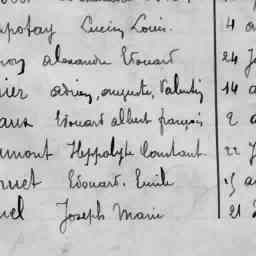 potay Lucien Louis. 4 a
Alexandre Edouard 24 J
ier Adrien, Auguste, Valentin 14 a
aux Edouard Albert François 2 a
umont Hyppolyte Constant 22 J
uet Edouard. Emile 15 a
uel Joseph Marie 21 J